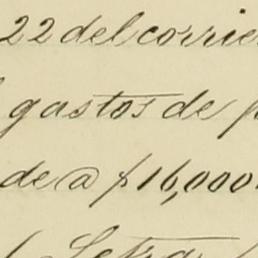 22 del corrie
gastos de p
de a $16,000.
Letra